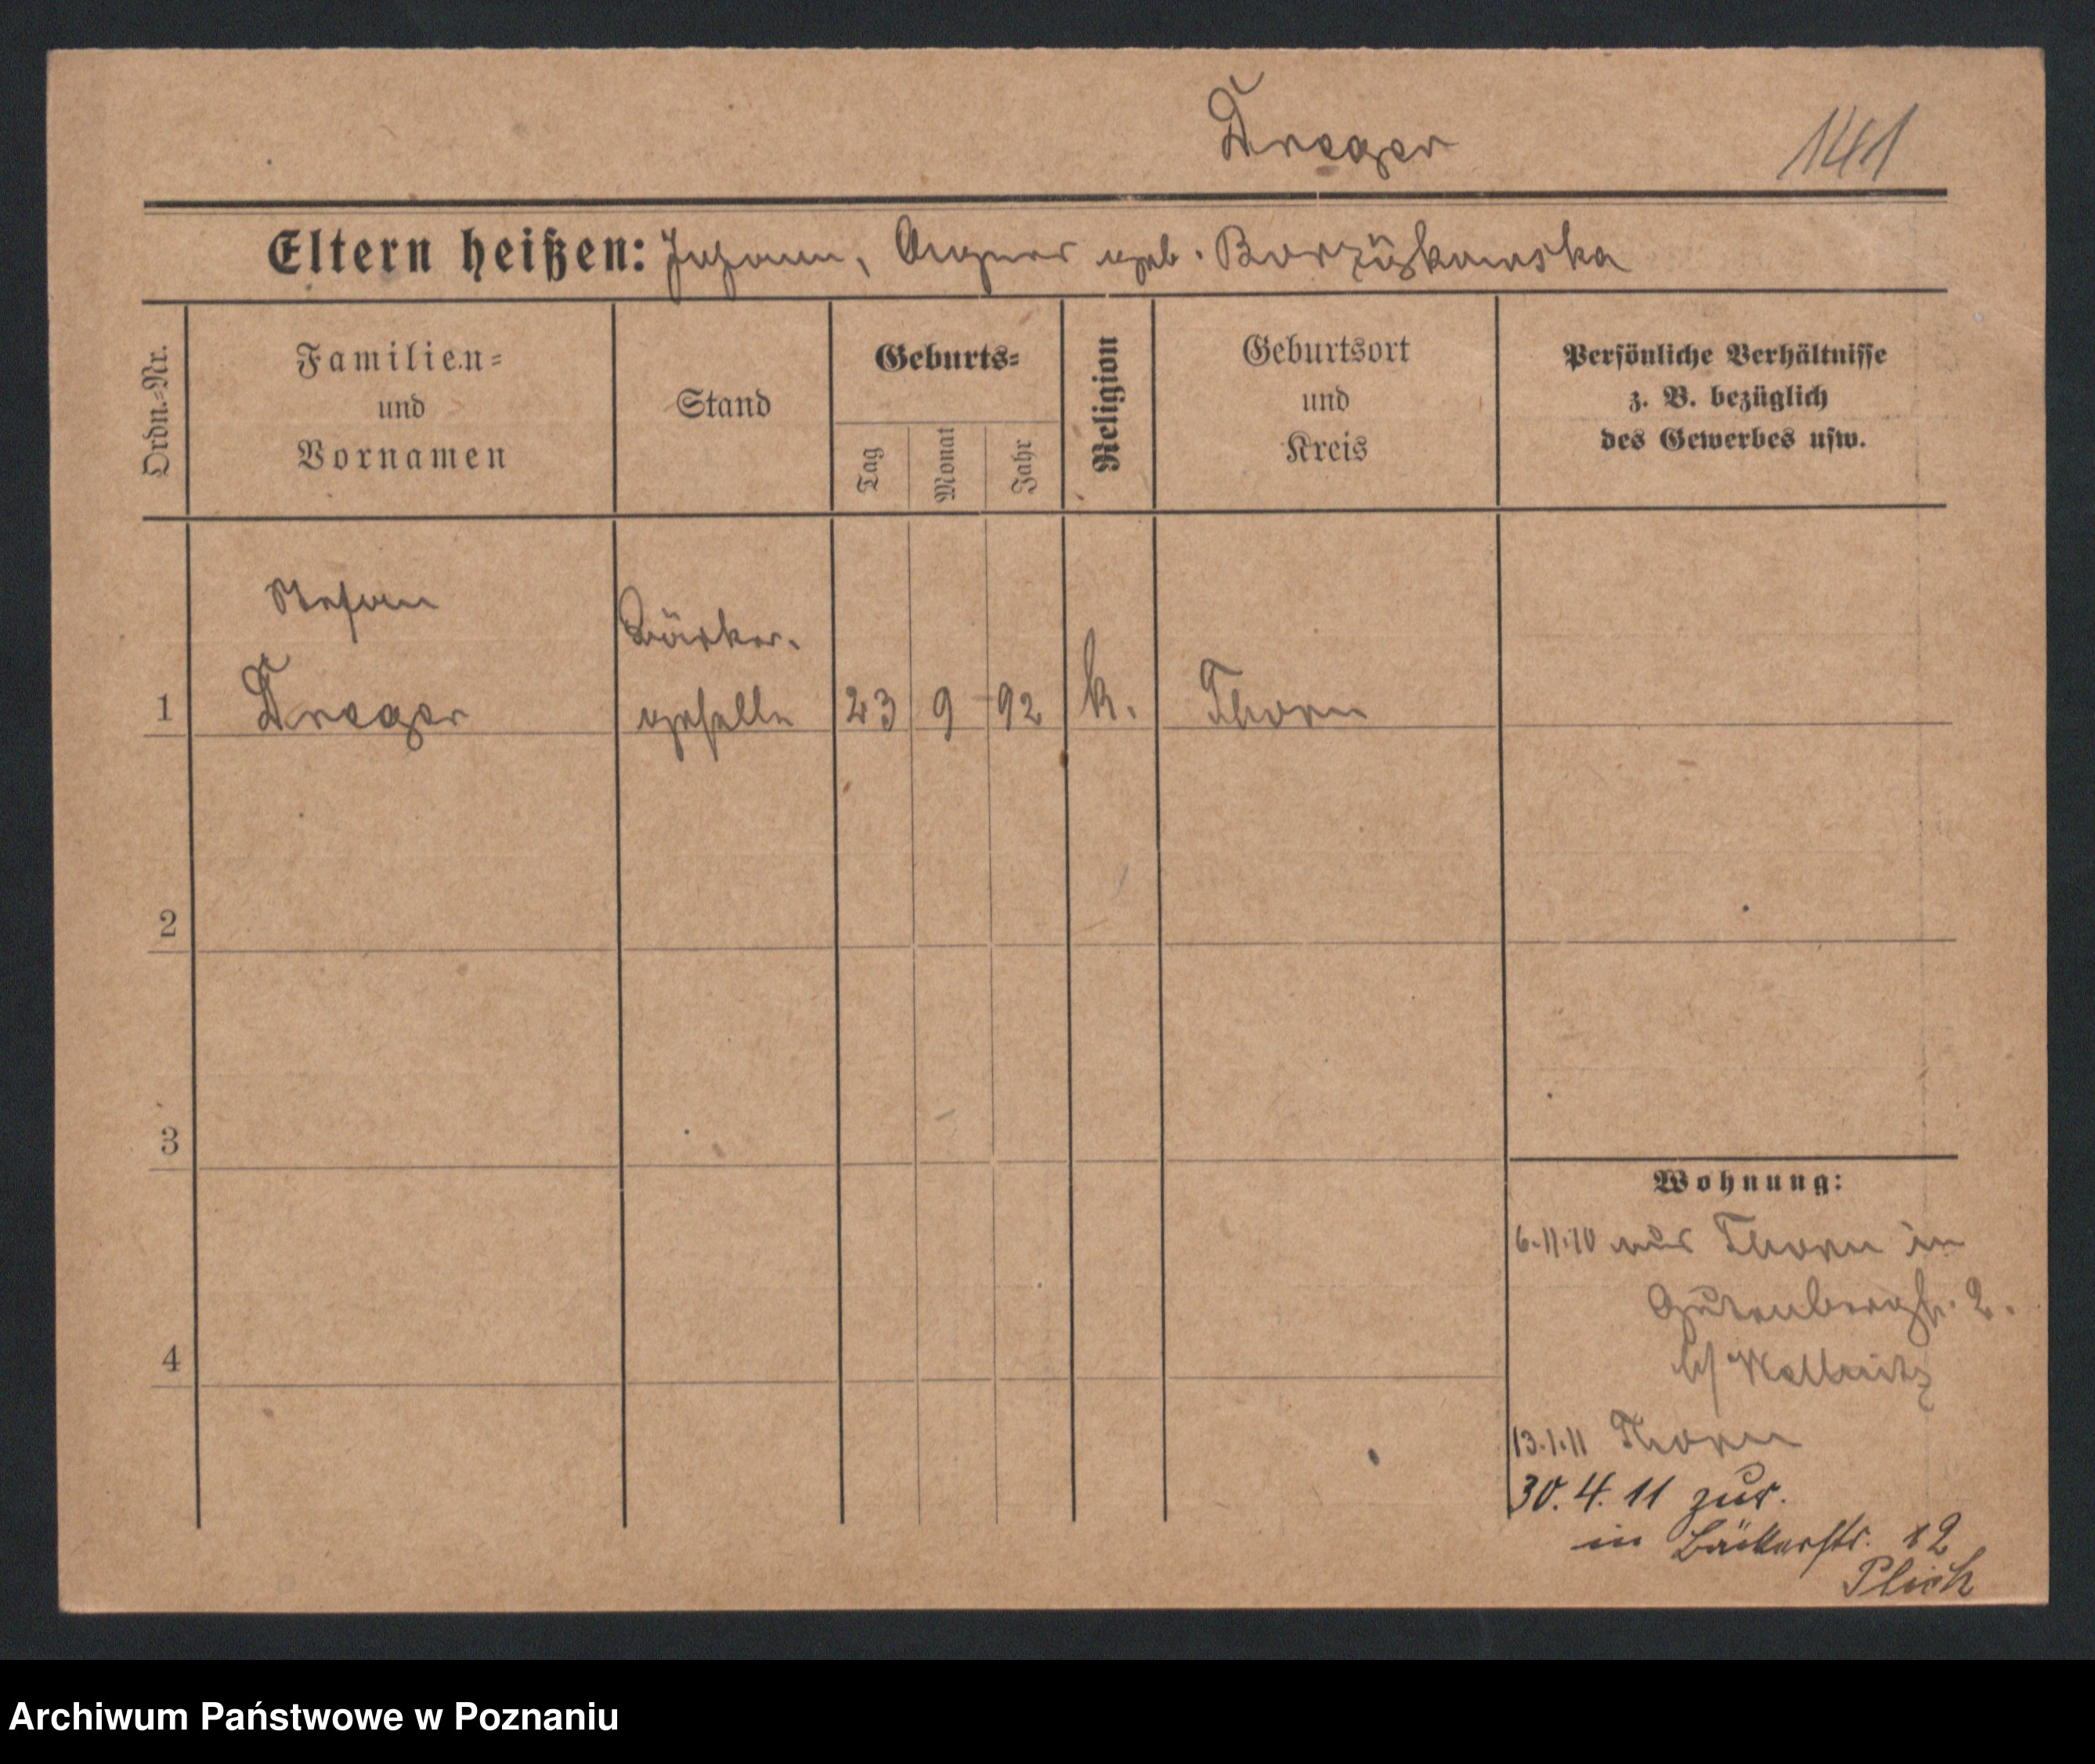 Dreger
141
Eltern heißen: Johann, Agnes geb. Borzüskowska
Ordn.-Nr.
Familien-
und
Vornamen
Stand
Geburts-
Tag
Monat
Jahr
Religion
Geburtsort
und
Kreis
Persönliche Verhältnisse
z. B. bezüglich
des Gewerbes usw.
Stefan
Bäcker-
1 Dreger geselle 23 9 92 k. Thorn
2
3
4
Wohnung:
6.11.10 aus Thorn in
Gutenbergstr. 2.
b/
13.1.11 Thorn
30. 4. 11 zur.
in Bäckerstr.
Plich
Archiwum Państwowe w Poznaniu